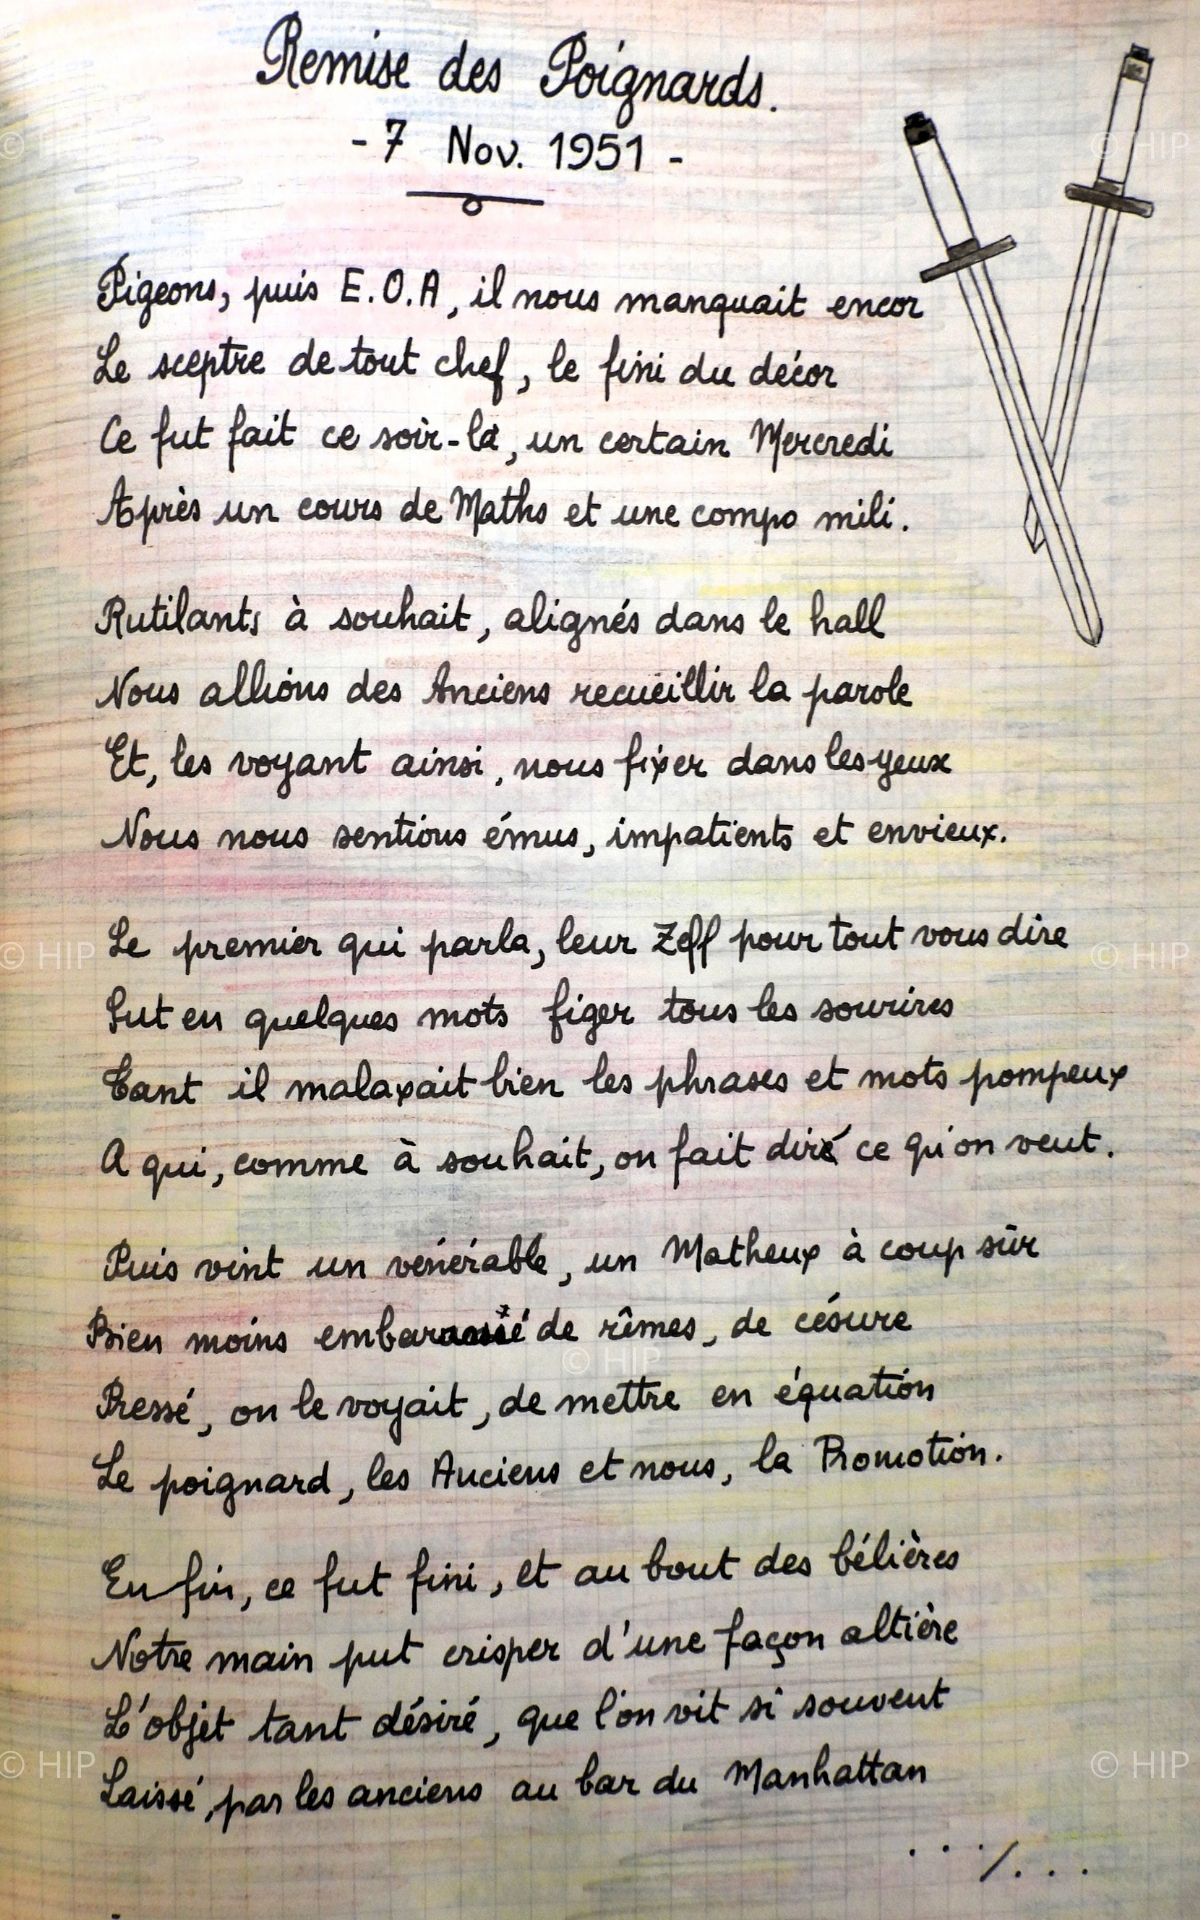 Remise des Poignards.
- 7 Nov. 1951 -
Pigeons, puis E.O.A, il nous manquait encor
Le sceptre de tout chef, le fini du décor
Ce fut fait ce soir-là, un certain Mercredi
Après un cours de Maths et une compo mili.
Rutilants à souhait, alignés dans le hall
Nous allions des Anciens recueillir la parole
Et, les voyant ainsi, nous fixer dans les yeux
Nous nous sentions émus, impatients et envieux.
Le premier qui parla, leur Zeff pour tout vous dire
Sut en quelques mots figer tous les sourires
Tant il malaxait bien les phrases et mots pompeux
A qui, comme à souhait, on fait dire ce qu'on veut.
Puis vint un vénérable, un Matheux à coup sûr
Bien moins embarassé de rîmes, de césure
Pressé, on le voyait, de mettre en équation
Le poignard, les Anciens et nous, la Promotion.
Enfin, ce fut fini, et au bout des bélières
Notre main put crisper d'une façon altière
L'objet tant désiré, que l'on vit si souvent
Laissé, par les anciens au bar du Manhattan
. . . / . . .
© HIP
© HIP
© HIP
© HIP
© HIP
© HIP
© HIP